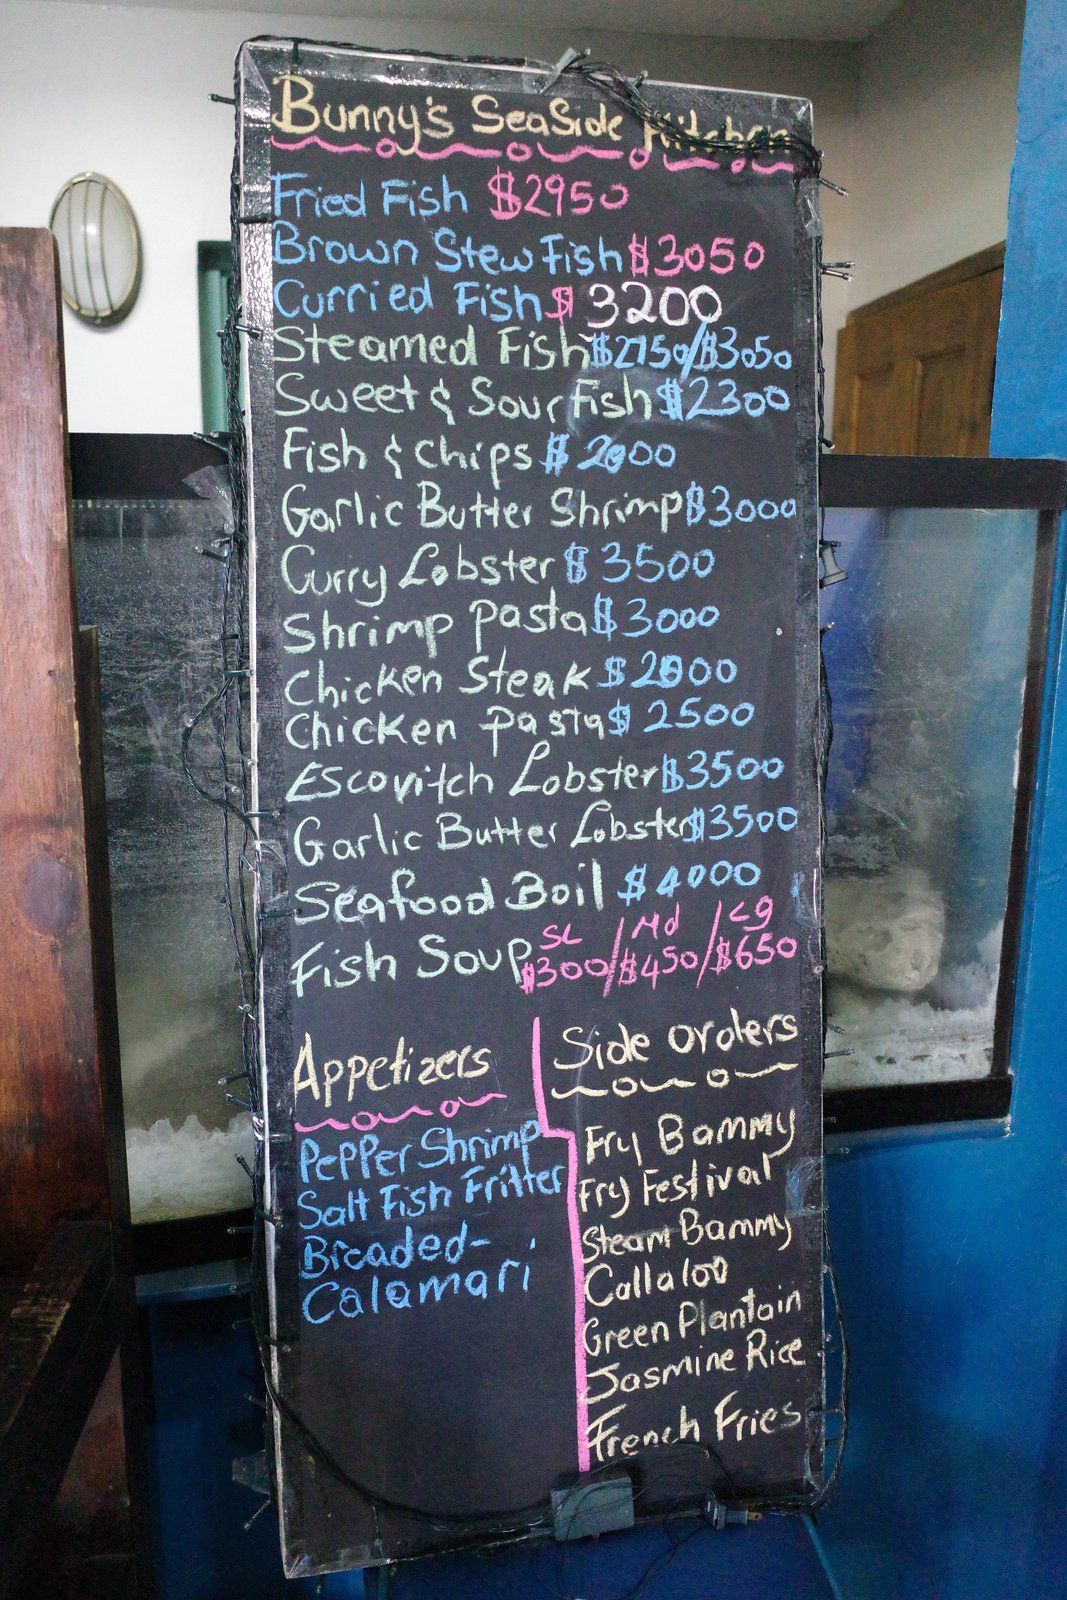 Bunny's SeaSide Kitchen
Fried Fish $2950
Brown Stew Fish $3050
Curried Fish $ 3200
Steamed Fish $2750/$3050
Sweet & Sour fish $2300
Fish & chips $ 2000
Garlic Butter Shrimp $3000
Curry Lobster $ 3500
Shrimp pasta $ 3000
Chicken Steak $ 2000
Chicken pasta $ 2500
Escovitch Lobster $3500
Garlic Butter Lobster $3500
Seafood Boil $ 4000
SL / Md / Lg
Fish Soup $300/$450/$650
Appetizers
Pepper Shrimp
Salt Fish Fritter
Breaded-
Calamari
Side orders
Fry Bammy
Fry Festival
Steam Bammy
Callaloo
Green Plantain
Jasmine Rice
French Fries